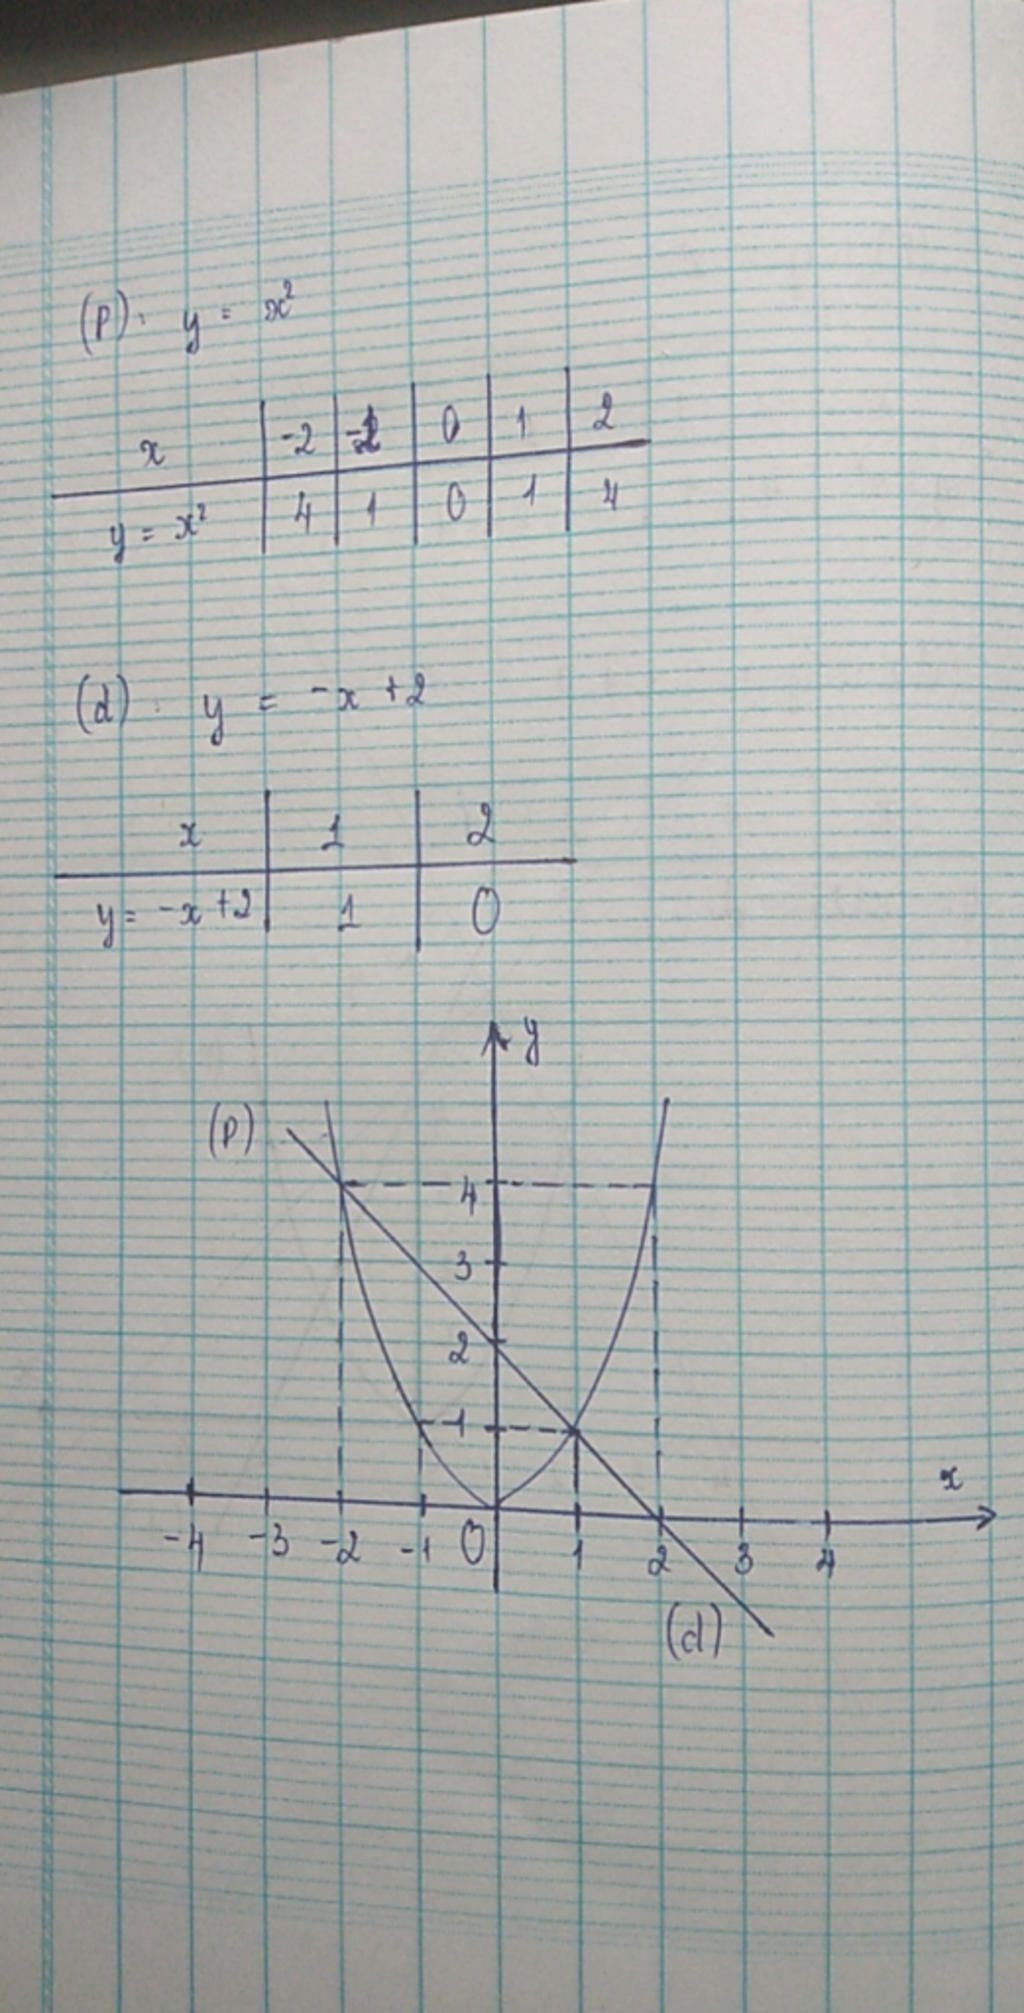 (P): y = x²
x -2 -1 0 1 2
y = x² 4 1 0 1 4
(d): y = -x + 2
x 1 2
y = -x + 2 1 0
y
(P)
4
3
2
1
x
-4 -3 -2 -1 0 1 2 3 4
(d)